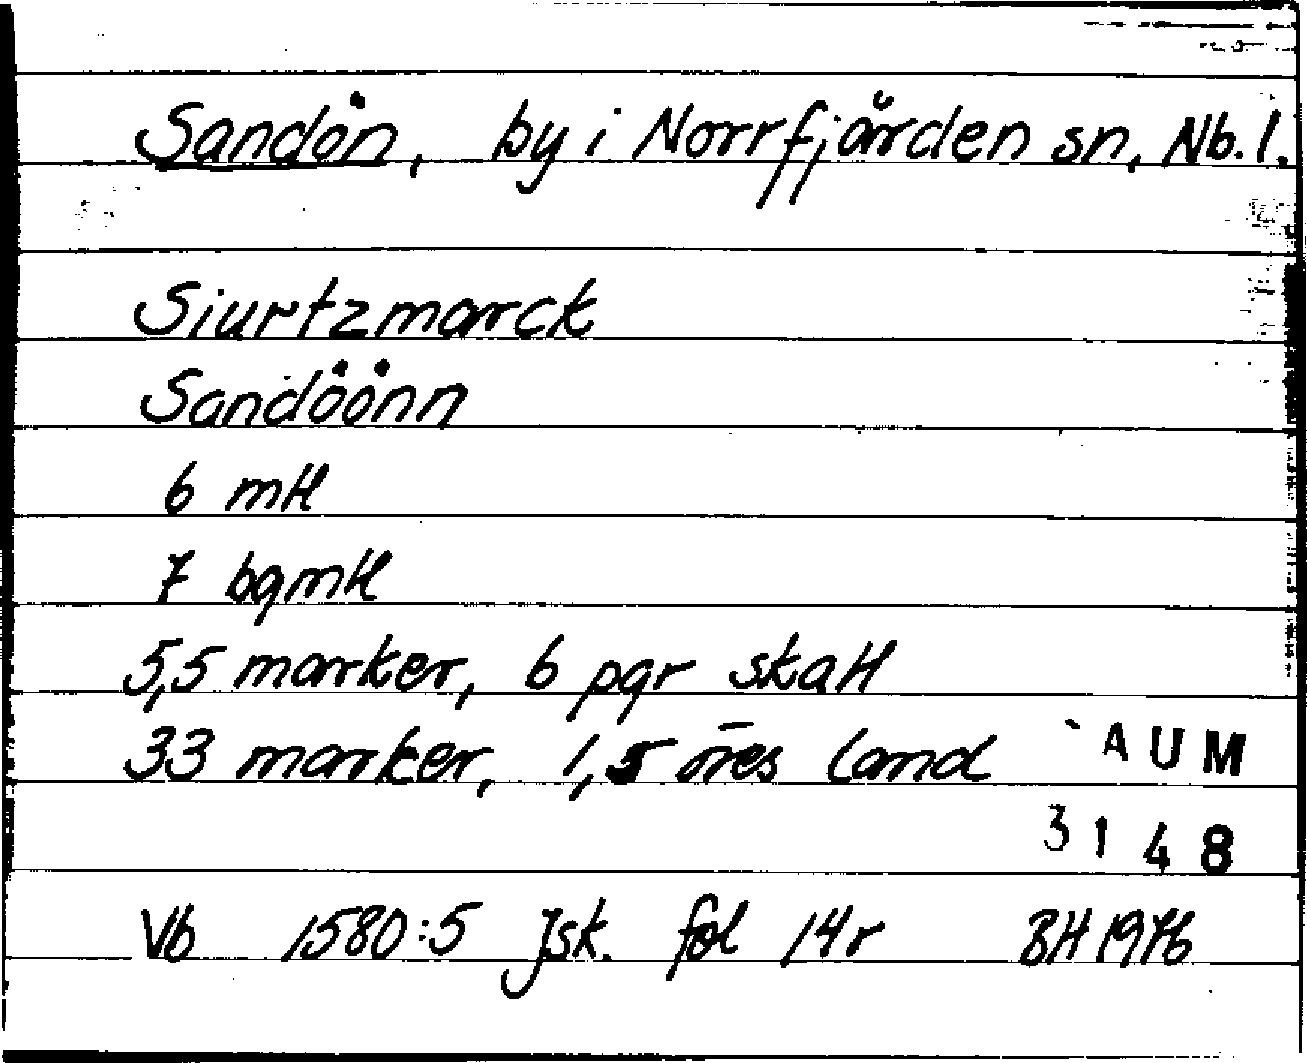 Sandön, by i Norrfjärden sn, Nb.l.
Siurtzmarck
Sandöönn
6 mtl
7 bgmtl
5,5 marker, 6 pgr skatt
33 marker, 1,5 öres land
AUM
3148
Vb 1580:5 Jsk. fol 14r BH 1976